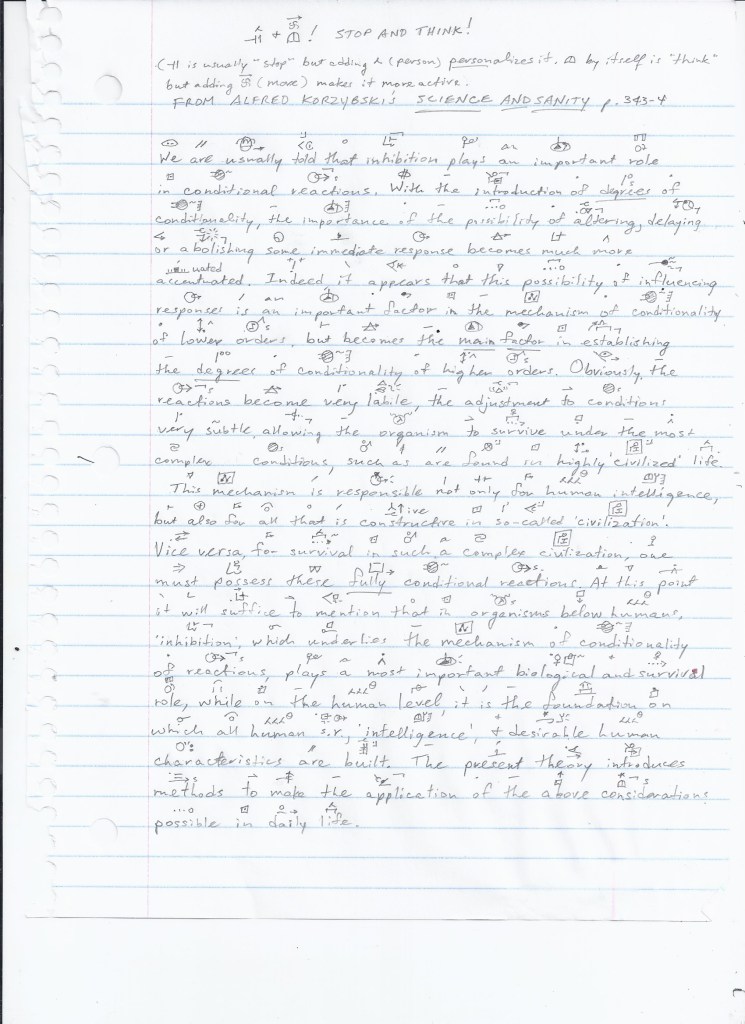 ! STOP AND THINK!
( is usually "stop" but adding (person) personalizes it. by itself is "think"
but adding (more) makes it more active.
FROM ALFRED KORZYBSKI'S SCIENCE AND SANITY p. 343-4
We are usually told that inhibition plays an important role
in conditional reactions. With the introduction of degrees of
conditionality, the importance of the possibility of altering, delaying
or abolishing some immediate response becomes much more
uated
accentuated. Indeed it appears that this possibility of influencing
responses is an important factor in the mechanism of conditionality
of lower orders, but becomes the main factor in establishing
the degrees of conditionality of higher orders. Obviously, the
reactions become very labile, the adjustment to conditions
very subtle, allowing the organism to survive under the most
complex conditions, such as are found in highly 'civilized' life.
This mechanism is responsible not only for human intelligence,
ive
but also for all that is constructive in so-called 'civilization'.
Vice versa, for survival in such a complex civilization, one
must possess these fully conditional reactions. At this point
it will suffice to mention that in organisms below humans,
'inhibition', which underlies the mechanism of conditionality
of reactions, plays a most important biological and survival
role, while on the human level, it is the foundation on
which all human s.r., 'intelligence', + desirable human
characteristics are built. The present theory introduces
methods to make the application of the above considerations
possible in daily life.